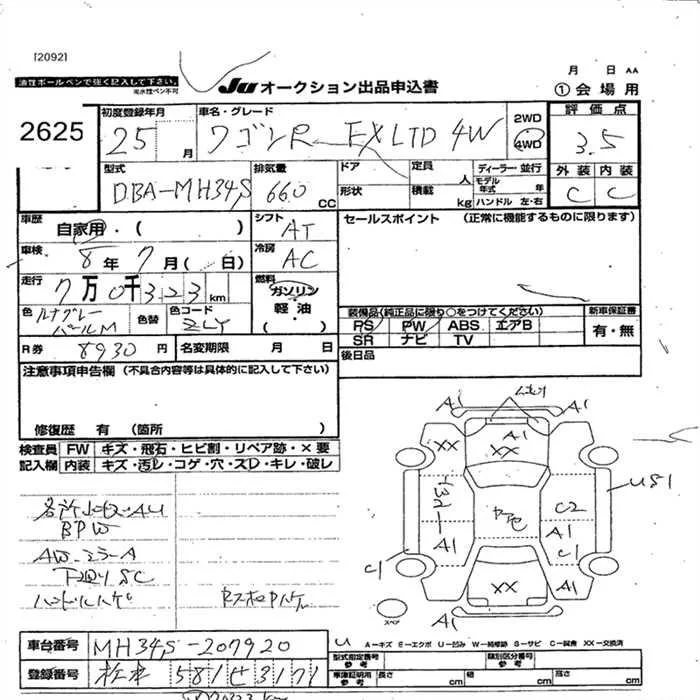 [2092]
油性ボールペンで強く記入して下さい。
※水性ペン不可
JU オークション出品申込書
月 日 AA
① 会場用
2625
初度登録年月
25 月
車名・グレード
ワゴンR FX LTD 4W
2WD
4WD
評価点
3.5
型式
DBA-MH34S
排気量
660 CC
ドア
形状
定員 人
積載 kg
ディーラー・並行
モデル年式 年
ハンドル 左・右
外装 内装
C C
車歴
自家用・( )
シフト
AT
セールスポイント (正常に機能するものに限ります)
車検
8年 7月( 日)
冷房
AC
走行
7万0千323km
燃料
ガソリン
軽油
( )
色
色替
色コード
ZLY
装備品(純正品に限り○をつけてください)
PS PW ABS エアB
SR ナビ TV
新車保証書
有・無
R券 8930円
名変期限 月 日
後日品
注意事項申告欄 (不具合内容等は具体的に記入して下さい)
修復歴 有 (箇所 )
検査員 FW キズ・飛石・ヒビ割・リペア跡・×要
記入欄 内装 キズ・汚レ・コゲ・穴・スレ・キレ・破レ
A1 A1
XX A1 XX
U51
C2
A1 A1
C1
C1
A1 XX A1
A1
スペア
BPW
AW ミラーA
車台番号 MH34S-207920
登録番号 松本 581 せ 3171
A=キズ E=エクボ U=凹み W=補修跡 S=サビ C=腐食 XX=交換済
型式指定番号
参考
類別区分番号
参考
車庫証明用
参考
長さ cm
幅 cm
高さ cm